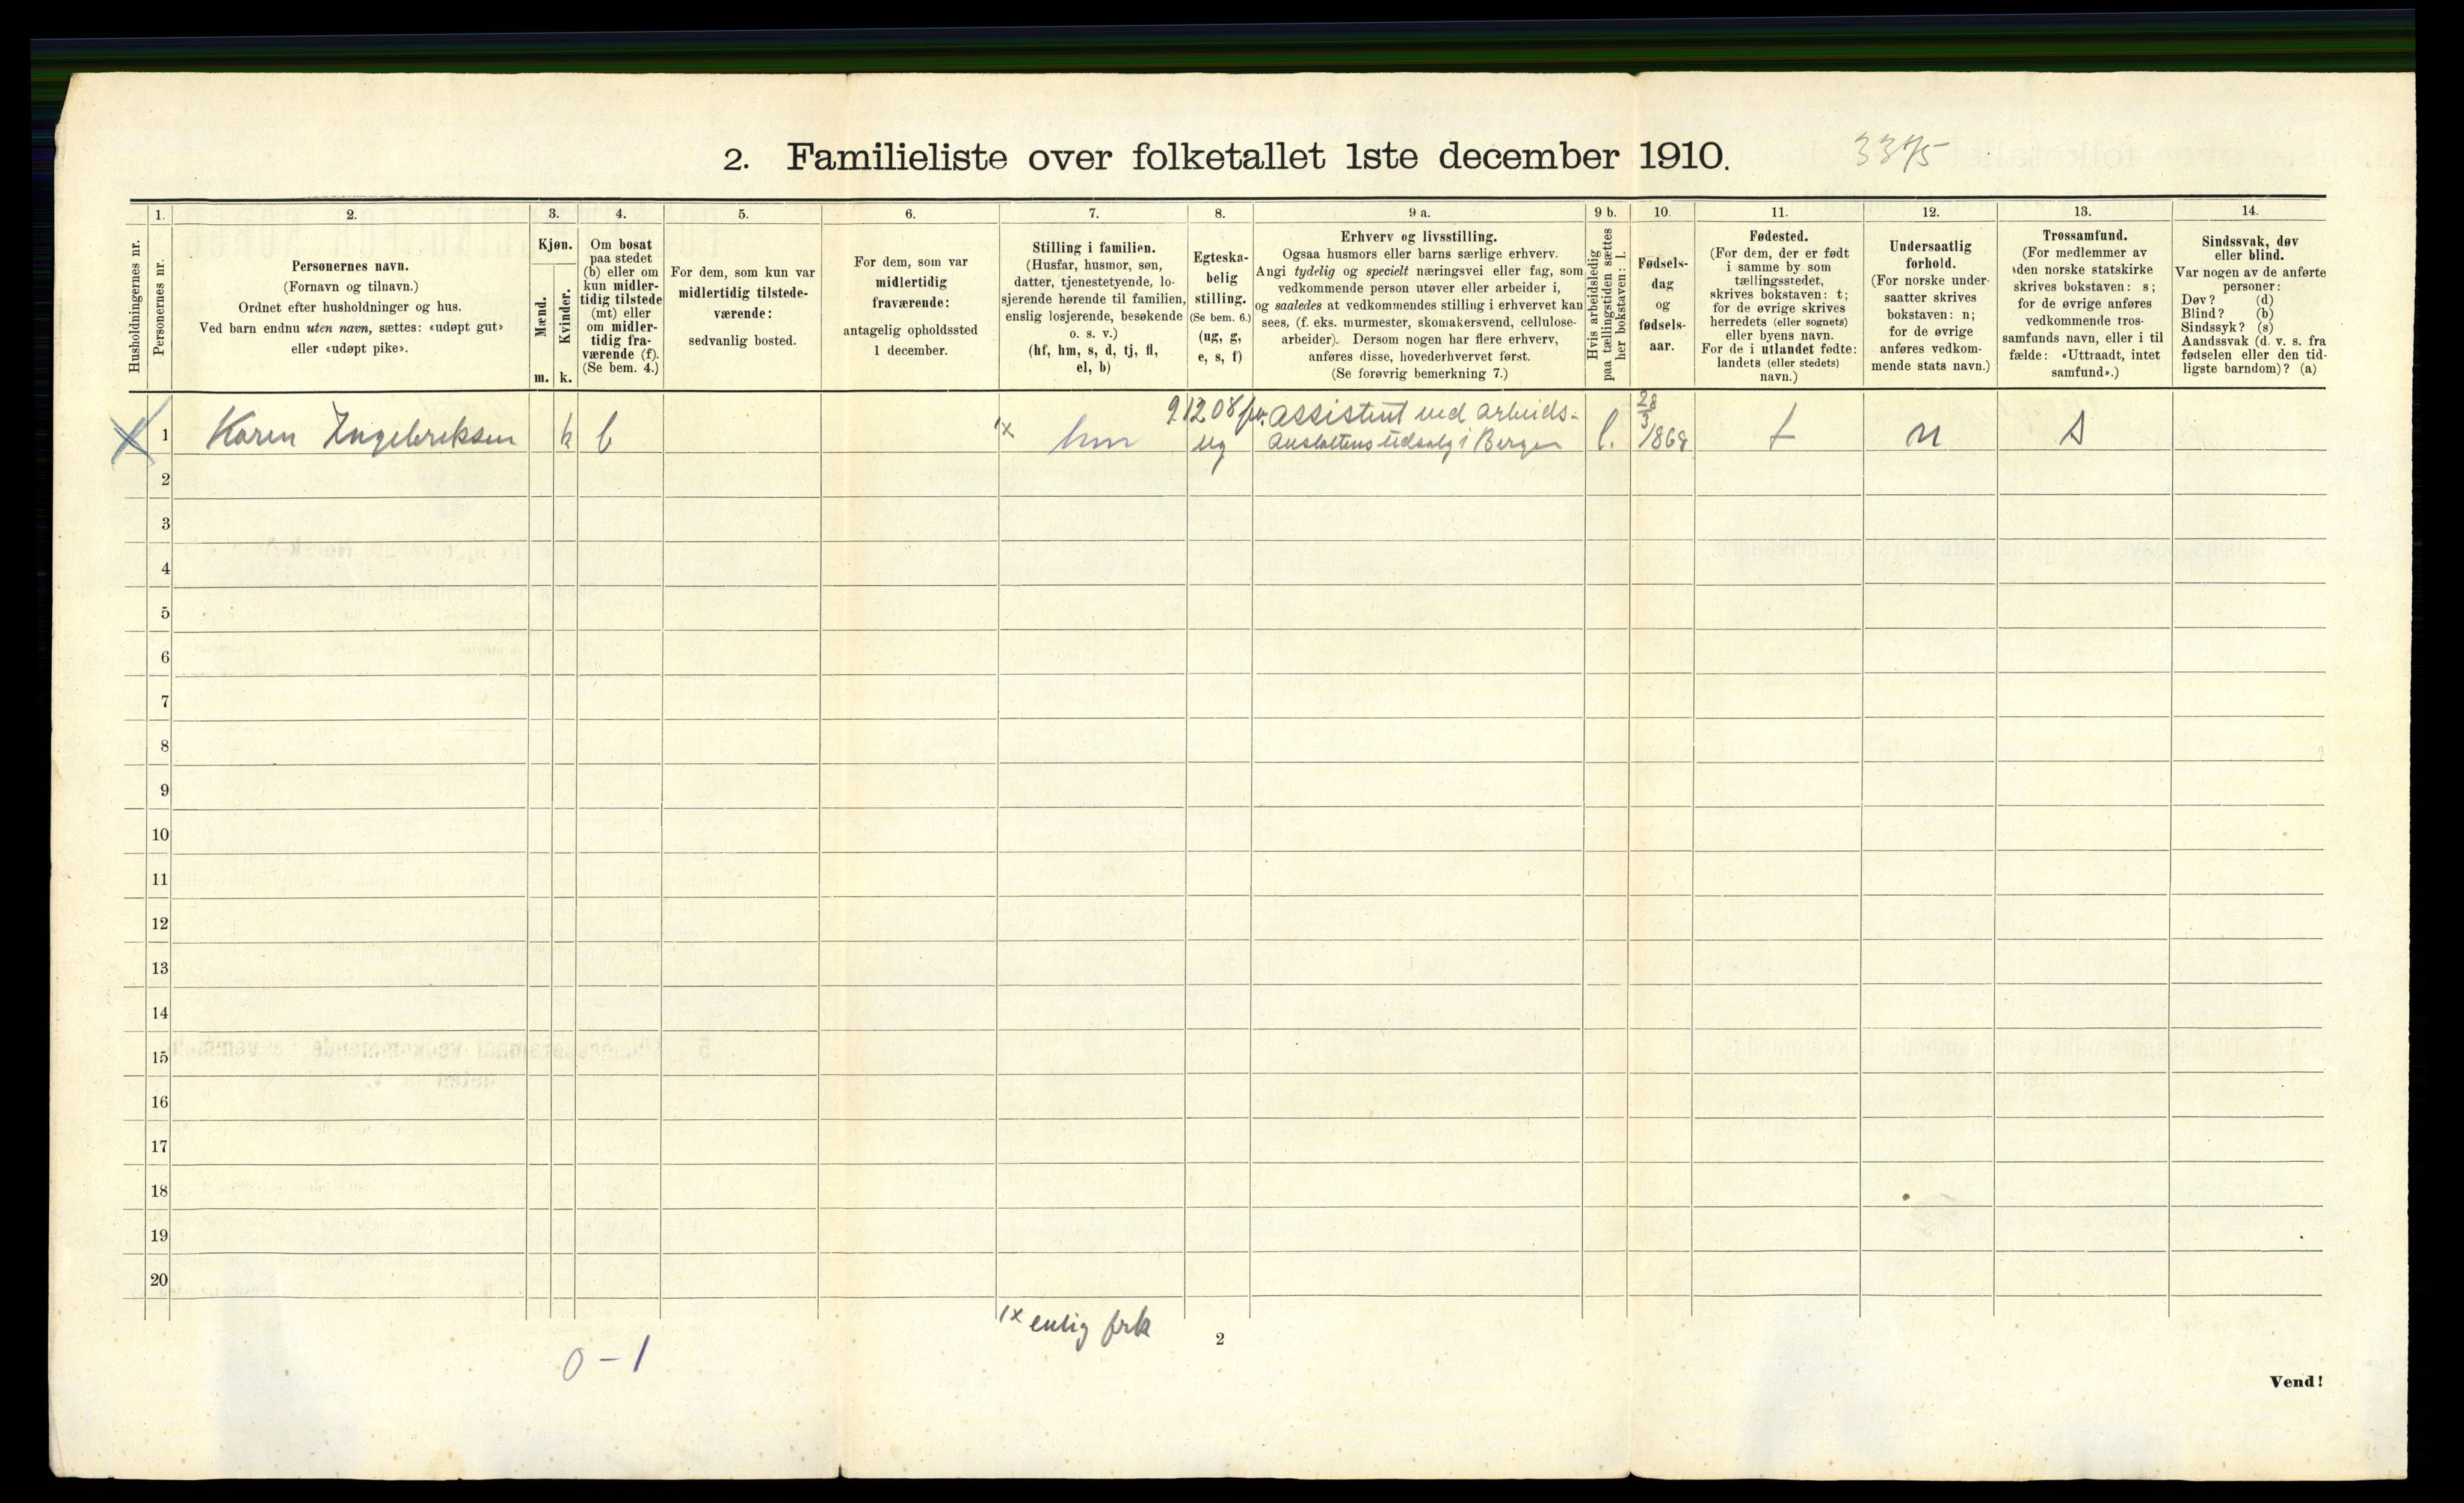 2. Familieliste over folketallet 1ste december 1910.
3375
1.
2.
3.
4.
5.
6.
7.
8.
9 a.
9 b.
10.
11.
12.
13.
14.
Husholdningernes nr.
Personernes nr.
Personernes navn.
(Fornavn og tilnavn.)
Ordnet efter husholdninger og hus.
Ved barn endnu uten navn, sættes: «udøpt gut»
eller «udøpt pike».
Kjøn.
Mænd.
Kvinder.
m.
k.
Om bosat
paa stedet
(b) eller om
kun midler-
tidig tilstede
(mt) eller
om midler-
tidig fra-
værende (f).
(Se bem. 4.)
For dem, som kun var
midlertidig tilstede-
værende:
sedvanlig bosted.
For dem, som var
midlertidig
fraværende:
antagelig opholdssted
1 december.
Stilling i familien.
(Husfar, husmor, søn,
datter, tjenestetyende, lo-
sjerende hørende til familien,
enslig losjerende, besøkende
o. s. v.)
(hf, hm, s, d, tj, fl,
el, b)
Egteska-
belig
stilling.
(Se bem. 6.)
(ug, g,
e, s, f)
Erhverv og livsstilling.
Ogsaa husmors eller barns særlige erhverv.
Angi tydelig og specielt næringsvei eller fag, som
vedkommende person utøver eller arbeider i,
og saaledes at vedkommendes stilling i erhvervet kan
sees, (f. eks. murmester, skomakersvend, cellulose-
arbeider). Dersom nogen har flere erhverv,
anføres disse, hovederhvervet først.
(Se forøvrig bemerkning 7.)
Hvis arbeidsledig
paa tællingstiden sættes
her bokstaven: l.
Fødsels-
dag
og
fødsels-
aar.
Fødested.
(For dem, der er født
i samme by som
tællingsstedet,
skrives bokstaven: t;
for de øvrige skrives
herredets (eller sognets)
eller byens navn.
For de i utlandet fødte:
landets (eller stedets)
navn.)
Undersaatlig
forhold.
(For norske under-
saatter skrives
bokstaven: n;
for de øvrige
anføres vedkom-
mende stats navn.)
Trossamfund.
(For medlemmer av
den norske statskirke
skrives bokstaven: s;
for de øvrige anføres
vedkommende tros-
samfunds navn, eller i til
fælde: «Uttraadt, intet
samfund».)
Sindssvak, døv
eller blind.
Var nogen av de anførte
personer:
Døv? (d)
Blind? (b)
Sindssyk? (s)
Aandssvak (d. v. s. fra
fødselen eller den tid-
ligste barndom)? (a)
X 1 Karen Ingebriktsen k b 1x hm ug
91208 pr. assistent ved arbeids-
anstaltens udsalg i Bergen l. 28/3 1868 t n s
2
3
4
5
6
7
8
9
10
11
12
13
14
15
16
17
18
19
20
1x enlig frk
0 - 1
2
Vend!